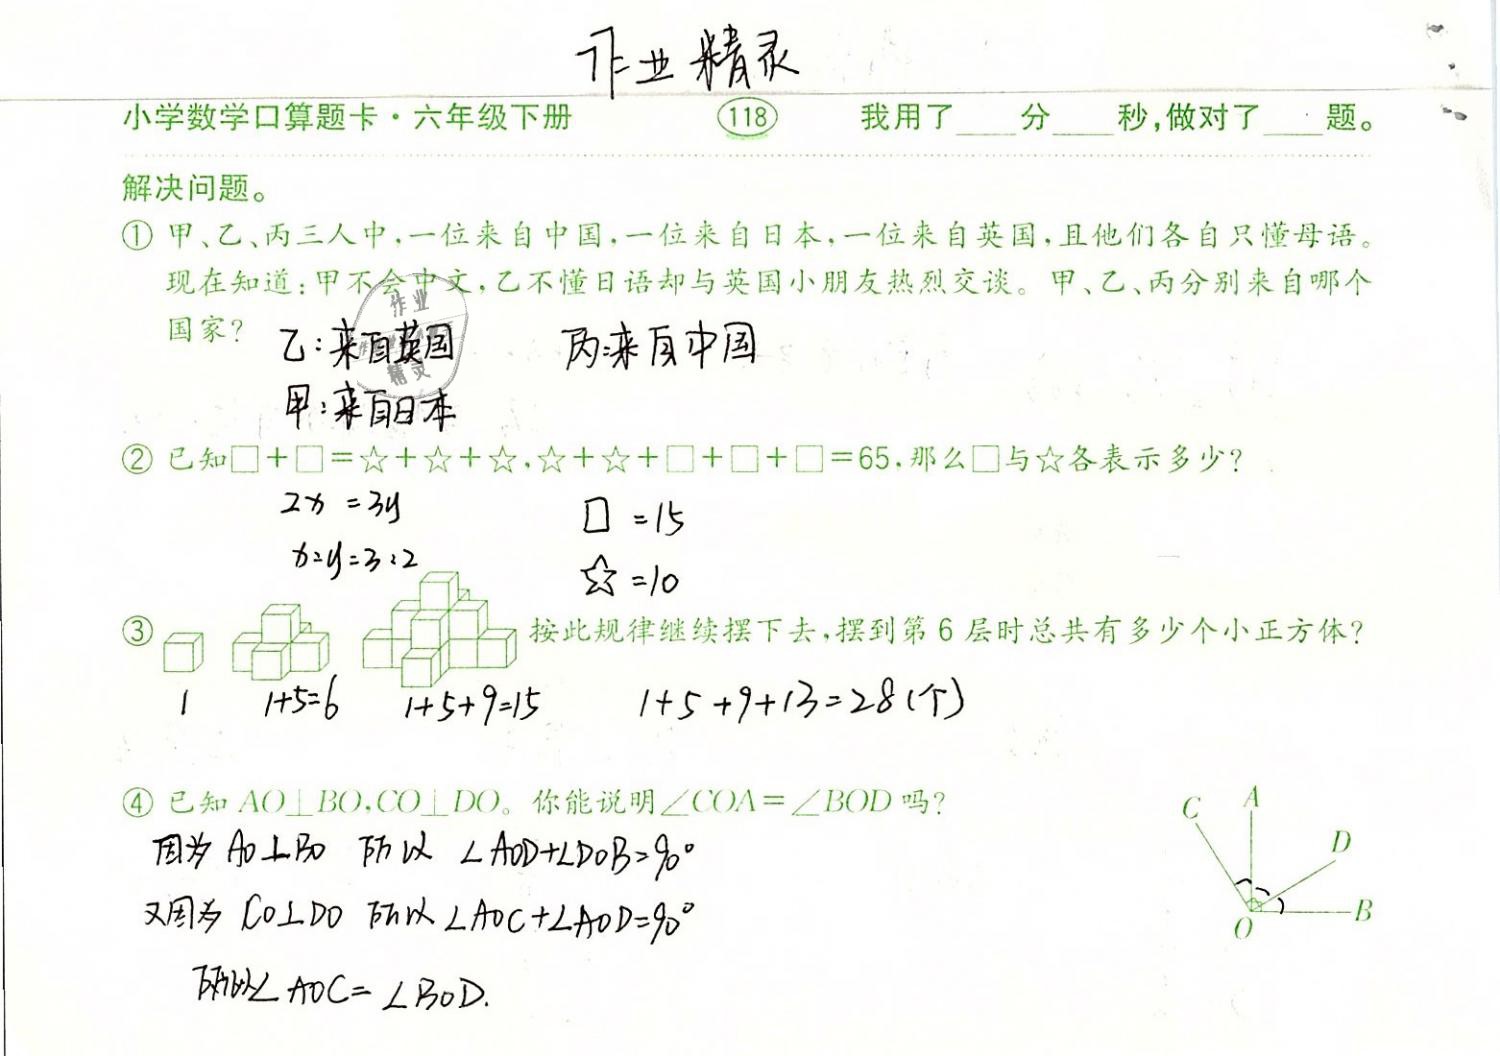 作业精灵
小学数学口算题卡·六年级下册 118 我用了____分____秒,做对了____题。
解决问题。
① 甲、乙、丙三人中,一位来自中国,一位来自日本,一位来自英国,且他们各自只懂母语。
现在知道:甲不会中文,乙不懂日语却与英国小朋友热烈交谈。甲、乙、丙分别来自哪个
国家?
作业
精灵
乙:来自英国 丙:来自中国
甲:来自日本
② 已知□+□=☆+☆+☆,☆+☆+□+□+□=65,那么□与☆各表示多少?
2x=3y □=15
x:y=3:2 ☆=10
③ 按此规律继续摆下去,摆到第6层时总共有多少个小正方体?
1 1+5=6 1+5+9=15 1+5+9+13=28(个)
④ 已知AO⊥BO,CO⊥DO。你能说明∠COA=∠BOD吗?
因为AO⊥BO 所以 ∠AOD+∠DOB=90°
又因为CO⊥DO 所以∠AOC+∠AOD=90°
所以∠AOC=∠BOD.
C A
D
B
O